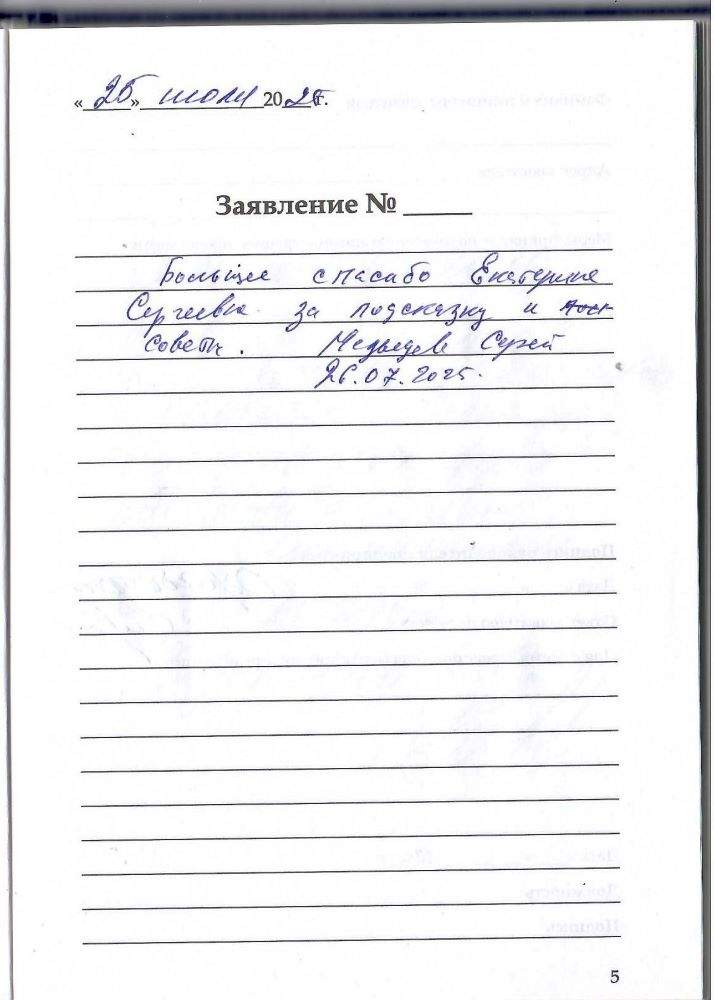 «26» июля 2025г.
Заявление №
Большее спасибо Екатерине
Сергеевне за подсказку и
советы. Медведев Сергей
26.07.2025.
5